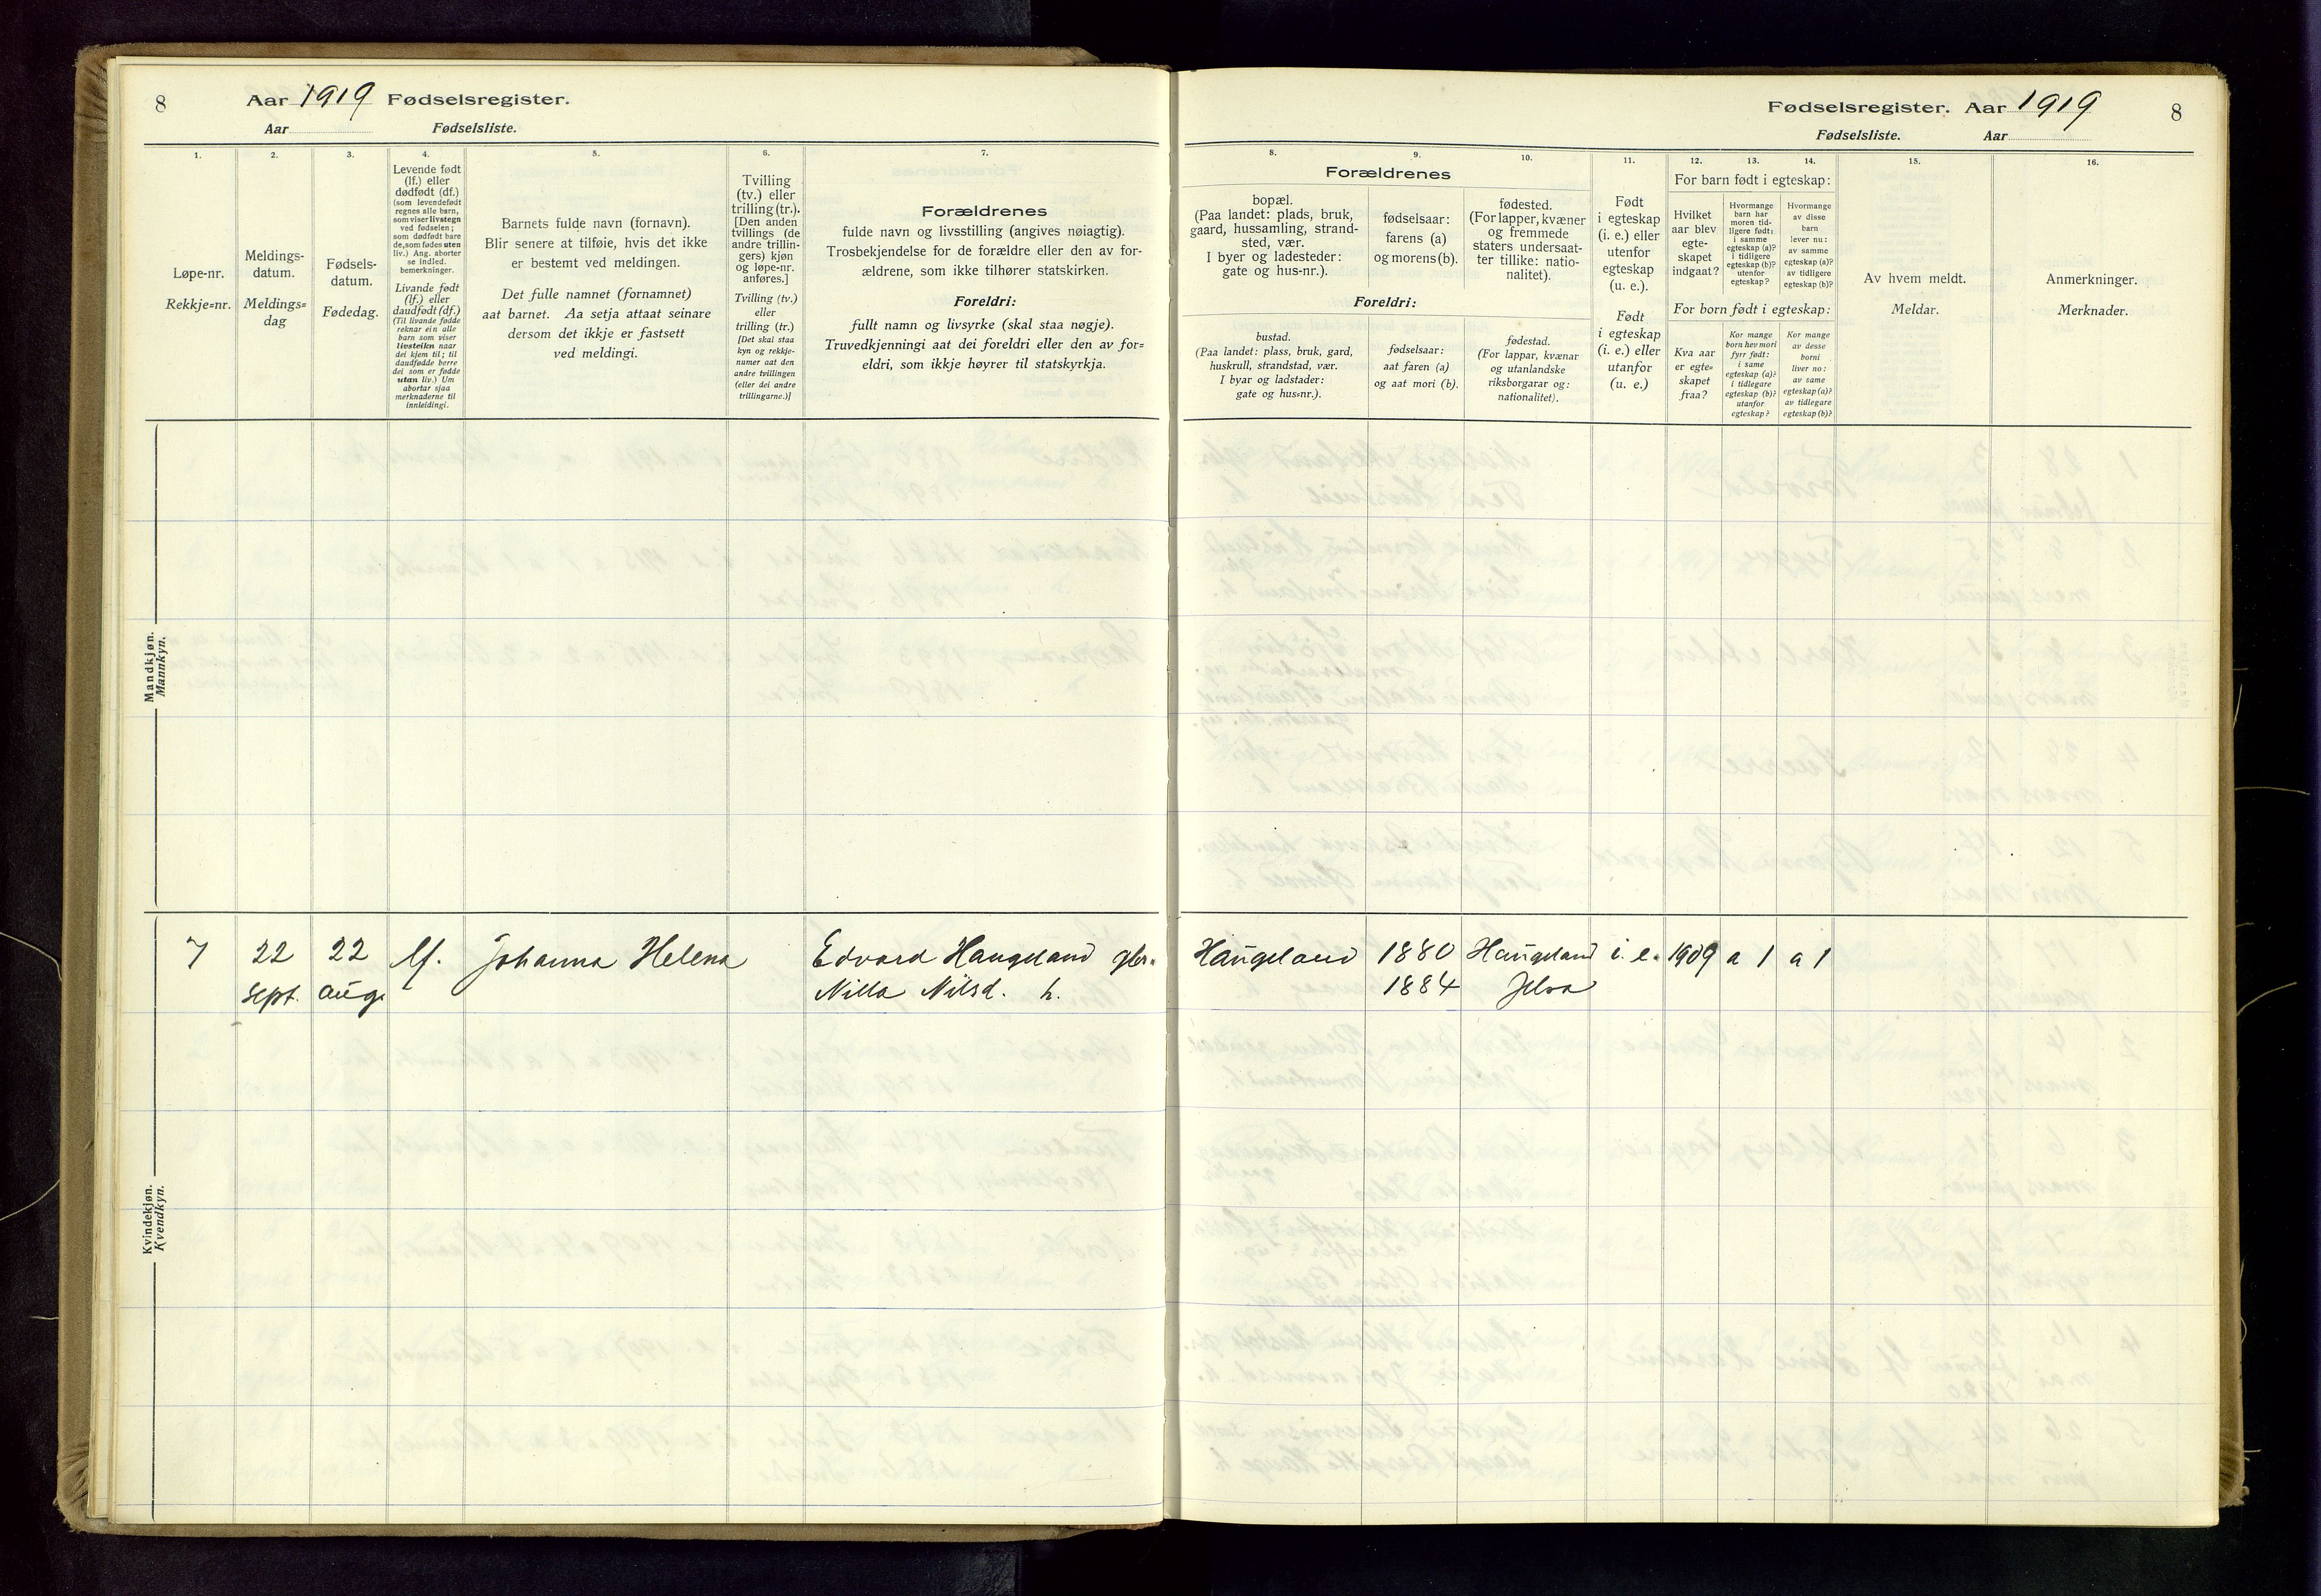 8
Aar 1919 Fødselsregister.
Aar Fødselsliste.
1.
2.
3.
4.
5.
6.
7.
Løpe-nr.
Rekkje=nr.
Meldings-
datum.
Meldings=
dag
Fødsels-
datum.
Fødedag.
Levende født
(lf.) eller
dødfødt (df.)
(som levendefødt
regnes alle barn,
som viser livstegn
ved fødselen;
som dødfødt bare
de, som fødes uten
liv.) Ang. aborter
se indled.
bemerkninger.
Livande født
(lf.) eller
daudfødt (df.)
(Til livande fødde
reknar ein alle
barn som viser
livsteikn naar
dei kjem til; til
daudfødde berre
dei som er fødde
utan liv.) Um
abortar sjaa
merknaderne til
innleidingi.
Barnets fulde navn (fornavn).
Blir senere at tilføie, hvis det ikke
er bestemt ved meldingen.
Det fulle namnet (fornamnet)
aat barnet. Aa setja attaat seinare
dersom det ikkje er fastsett
ved meldingi.
Tvilling
(tv.) eller
trilling (tr.).
[Den anden
tvillings (de
andre trillin-
gers) kjøn
og løpe-nr.
anføres.]
Tvilling (tv.)
eller
trilling (tr.)
[Det skal staa
kyn og rekkje-
numer aat den
andre tvillingen
(eller dei andre
trillingarne.)]
Forældrenes
fulde navn og livsstilling (angives nøiagtig).
Trosbekjendelse for de forældre eller den av for-
ældrene, som ikke tilhører statskirken.
Foreldri:
fullt namn og livsyrke (skal staa nøgje).
Truvedkjenningi aat dei foreldri eller den av for=
eldri, som ikkje høyrer til statskyrkja.
Mandkjøn.
Mannkyn.
7
22
sept.
22
aug.
lf.
Johanna Helena
Edvard Haugeland gbr.
Nilla Nilsd. h.
Kvindekjøn.
Kvendkyn.
Fødselsregister. Aar 1919
8
Fødselsliste. Aar
8.
9.
10.
11.
12.
13.
14.
15.
16.
Forældrenes
bopæl.
(Paa landet: plads, bruk,
gaard, hussamling, strand-
sted, vær.
I byer og ladesteder:
gate og hus-nr.).
fødselsaar:
farens (a)
og morens (b).
fødested.
(For lapper, kvæner
og fremmede
staters undersaat-
ter tillike: natio-
nalitet).
Foreldri:
bustad.
(Paa landet: plass, bruk, gard,
huskrull, strandstad, vær.
I byar og ladstader:
gate og hus=nr.).
fødselsaar:
aat faren (a)
og aat mori (b).
fødestad.
(For lappar, kvænar
og utanlandske
riksborgarar og:
nationalitet).
Født
i egteskap
(i. e.) eller
utenfor
egteskap
(u. e.).
Født
i egteskap
(i. e.) eller
utanfor
(u. e.)
For barn født i egteskap:
Hvilket
aar blev
egte-
skapet
indgaat?
Hvormange
barn har
moren tid-
ligere født:
i samme
egteskap (a)?
i tidligere
egteskap (b)?
utenfor
egteskap?
Hvormange
av disse
barn
lever nu:
av samme
egteskap (a)?
av tidligere
egteskap (b)?
For born født i egteskap:
Kva aar
er egte=
skapet
fraa?
Kor mange
born hev mori
fyrr født:
i same
egteskap (a)?
i tidlegare
egteskap (b)?
utanfor
egteskap?
Kor mange
av desse
borni
liver no:
av same
egteskap (a)?
av tidlegare
egteskap (b)?
Av hvem meldt.
Meldar.
Anmerkninger.
Merknader.
Haugeland 1880 Haugeland i. e. 1909 a 1 a 1
1884 Jelsa